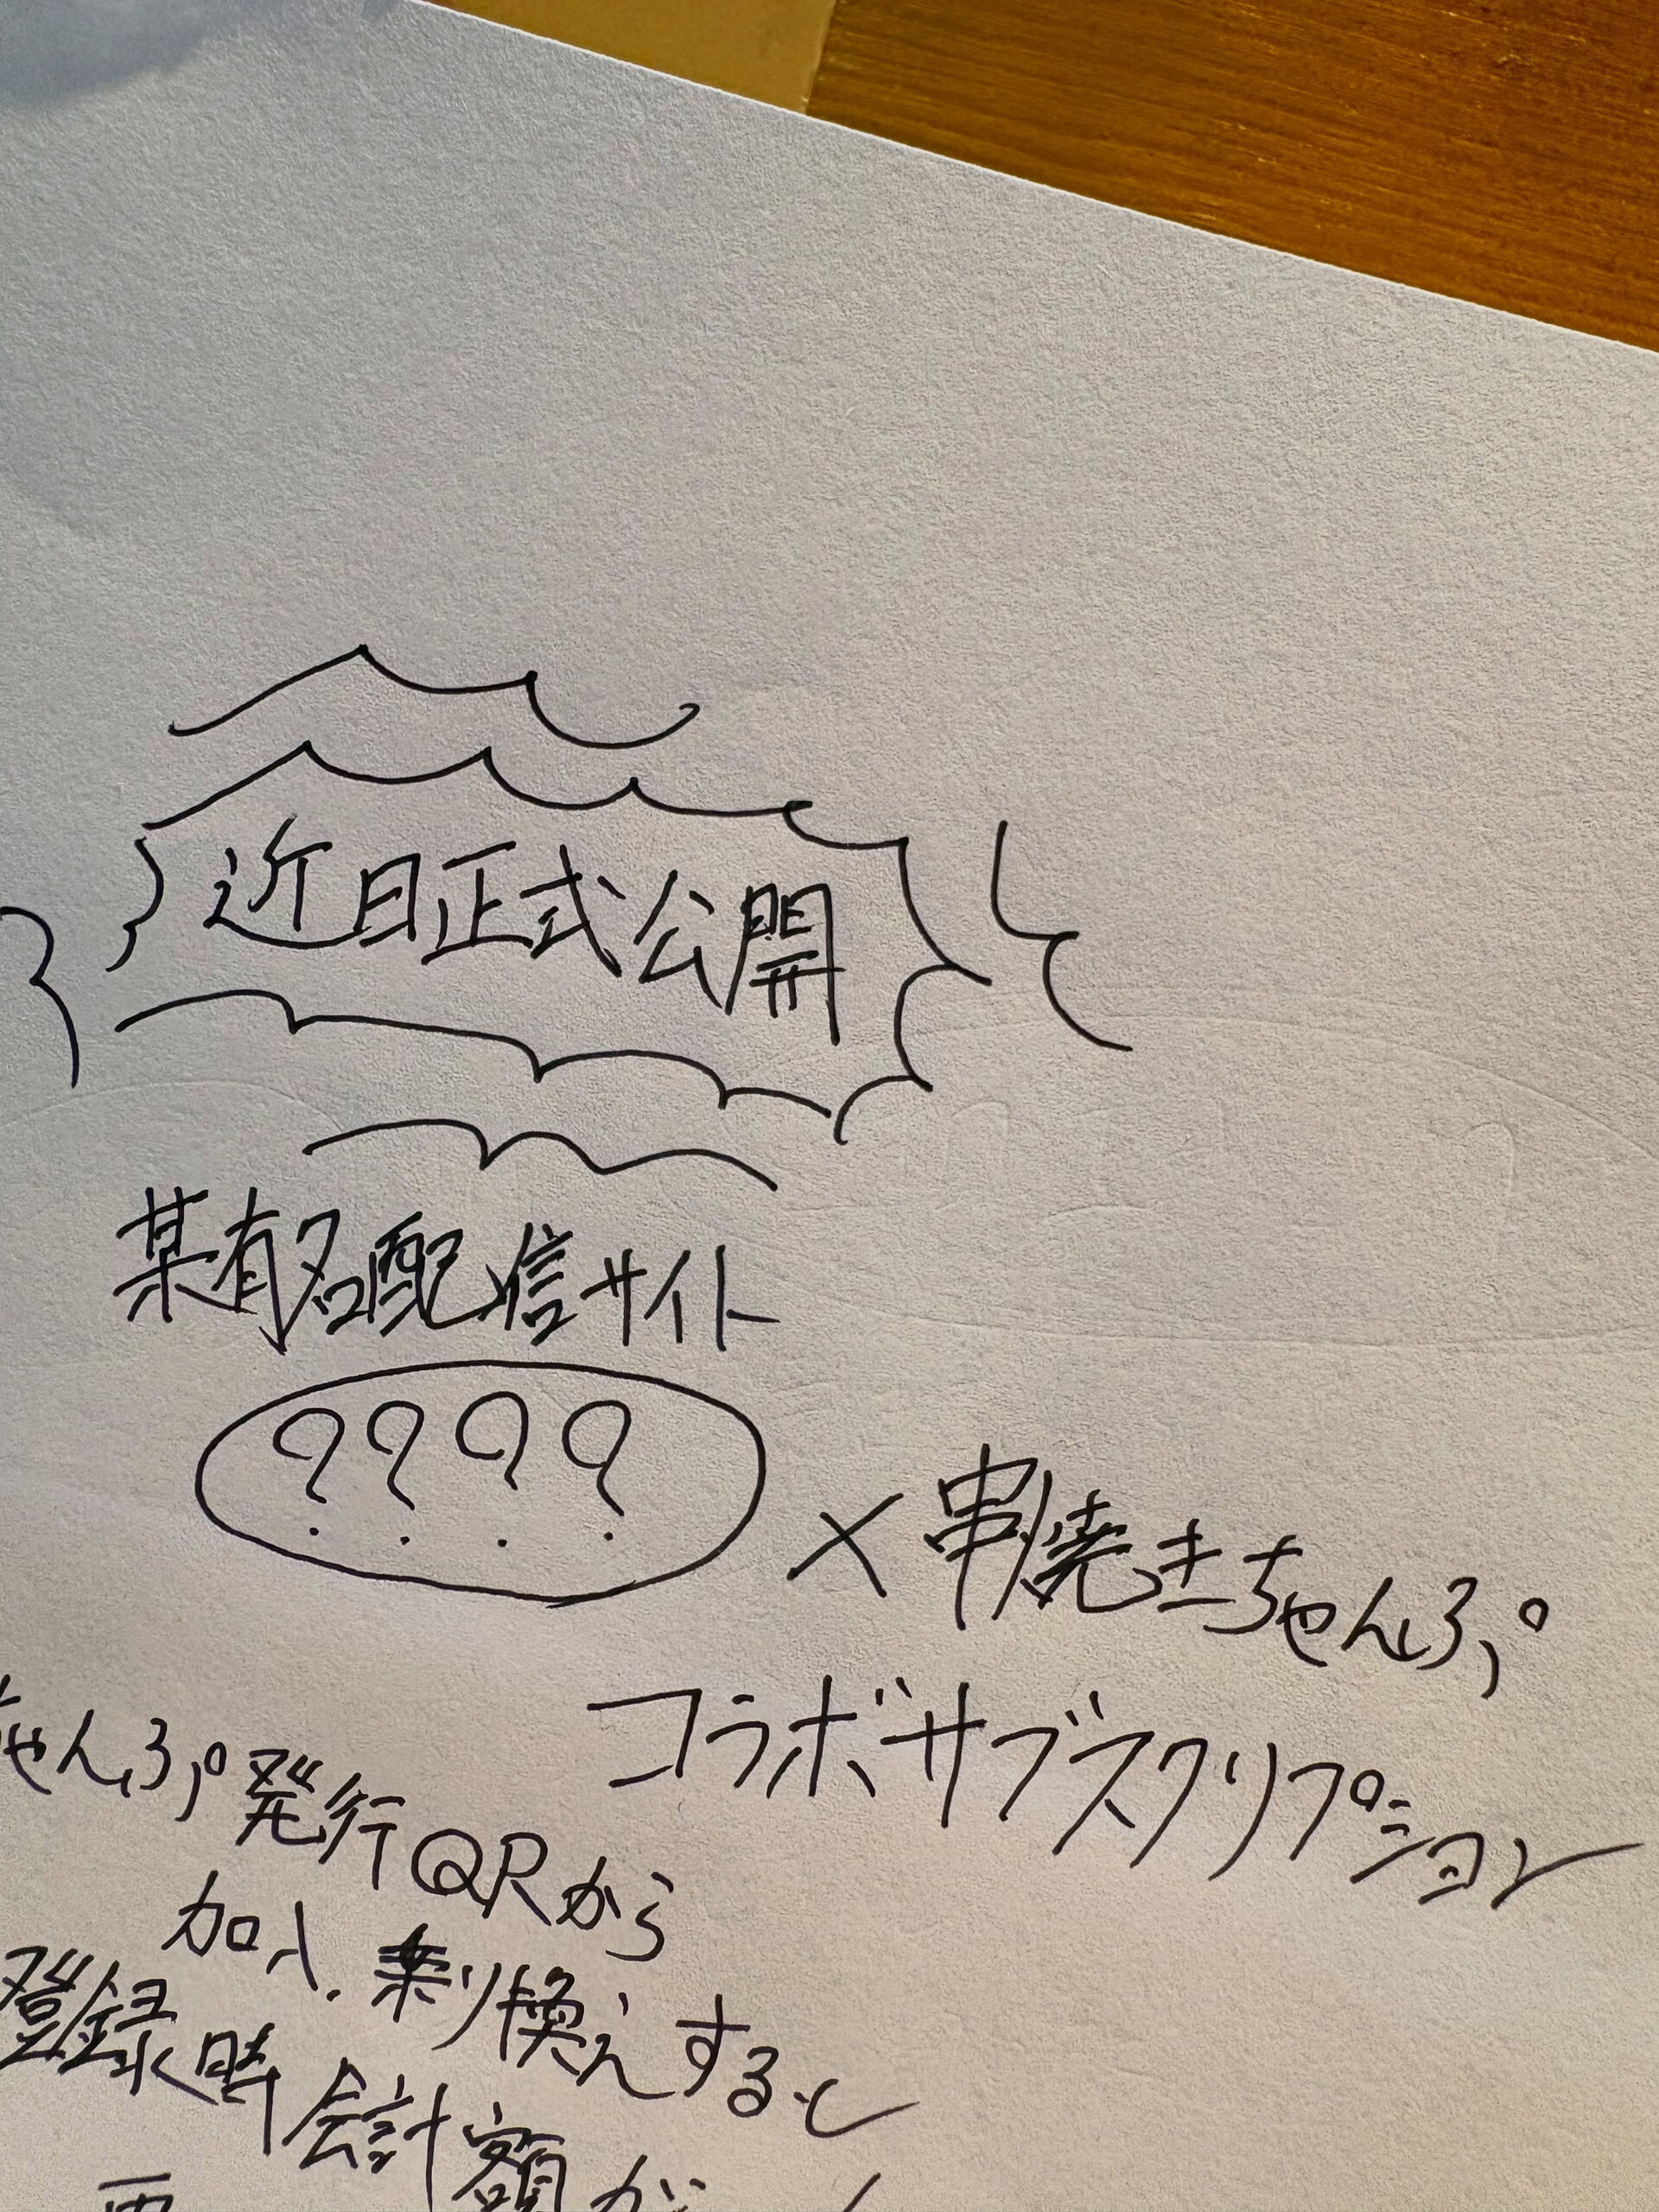 近日正式公開
某有名配信サイト
????
×串焼きちゃんぷ
コラボサブスクリプション
ちゃんぷ発行QRから
加入.乗り換えすると
登録時会計額が